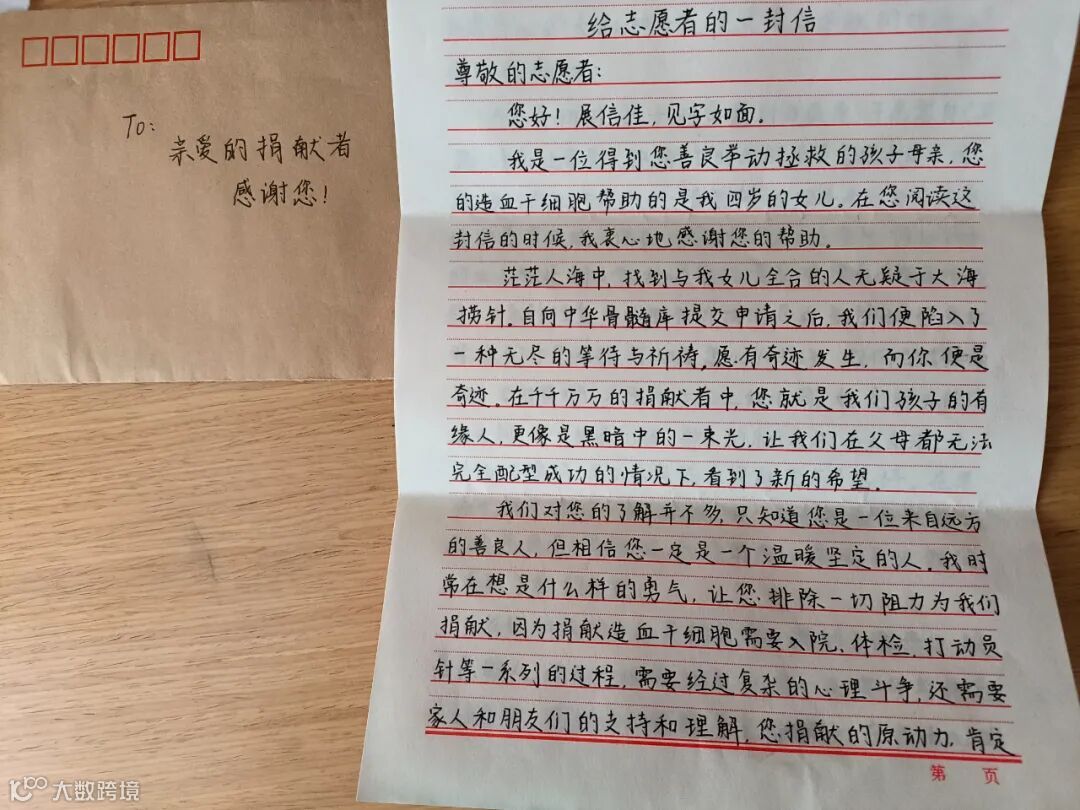 To:
亲爱的捐献者
感谢您!
给志愿者的一封信
尊敬的志愿者:
您好!展信佳,见字如面。
我是一位得到您善良举动拯救的孩子母亲,您
的造血干细胞帮助的是我四岁的女儿。在您阅读这
封信的时候,我衷心地感谢您的帮助。
茫茫人海中,找到与我女儿全合的人无疑于大海
捞针。自向中华骨髓库提交申请之后,我们便陷入了
一种无尽的等待与祈祷,愿有奇迹发生,而你便是
奇迹。在千千万万的捐献者中,您就是我们孩子的有
缘人,更像是黑暗中的一束光,让我们在父母都无法
完全配型成功的情况下,看到了新的希望。
我们对您的了解并不多,只知道您是一位来自远方
的善良人,但相信您一定是一个温暖坚定的人。我时
常在想是什么样的勇气,让您排除一切阻力为我们
捐献,因为捐献造血干细胞需要入院、体检、打动员
针等一系列的过程,需要经过复杂的心理斗争,还需要
家人和朋友们的支持和理解,您捐献的原动力,肯定
第 页
大数跨境